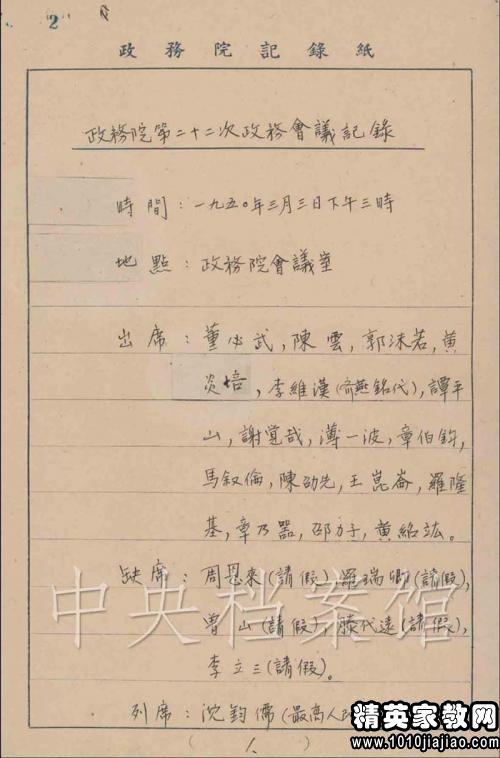 2
政務院記錄紙
政務院第二十二次政務會議記錄
時間：一九五〇年三月三日下午三時
地點：政務院會議室
出席：董必武，陳雲，郭沫若，黃
炎培，李維漢（齊燕銘代），譚平
山，謝覚哉，薄一波，章伯鈞，
馬敘倫，陳劭先，王崑崙，羅隆
基，章乃器，邵力子，黃紹竑。
缺席：周恩來（請假），羅瑞卿（請假），
曾山（請假），滕代遠（請假），
李立三（請假）。
列席：沈鈞儒（最高人民
中央档案馆
精英家教网
www.1010jiajiao.com